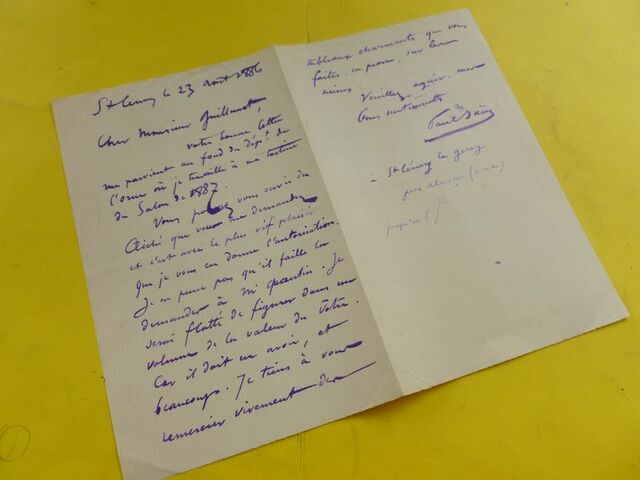 St Céneri le 23 août 1886
Cher Monsieur Guillemot,
votre bonne lettre
me parvient au fond du dépt. de
l'orne où je travaille à ma tartine
du Salon de 1887.
Vous pouvez vous servir du
Cliché que vous me demandez
et c'est avec le plus vif plaisir
que je vous en donne l'autorisation.
Je ne pense pas qu'il faille la
demander à Mr quantin. Je
serai flatté de figurer dans un
volume de la valeur du vôtre.
Car il doit en avoir, et
beaucoup. Je tiens à vous
remercier vivement des
tableaux charmants que vous
faites en prose, sur les
miens. Veuillez agréer mes
bons sentiments
Paul
à St Céneri le gerey
près alençon (orne)